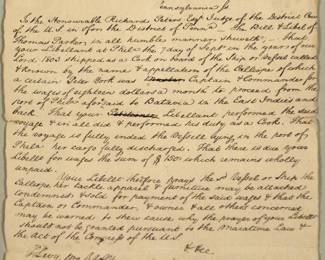 Pennsylvania ss
To the Honourable Richard Peters Esqr Judge of the District Court
of the U.S. in & for the District of Penna. The Bill & Libel of
Thomas Parker in all humble manner sheweth, That
your Libellant at Phila the 7 day of Sept in the years of our
Lord 1803 shipped as a Cook on board of the Ship or Vessel called
& known by the name & appellation of the Calliope of which
a certain was Captain & Commander for
the wages of eighteen dollars a month to proceed from the
port of Phila aforesaid to Batavia in the East Indies and
back That your Libellant performed the said
voyage & in all did & performed his duty as a Cook. That
the voyage is fully ended the Vessell lying in the port of
Phila her cargo fully discharged. That there is due your
Libellt for wages the sum of $ 130 which remains wholly
unpaid.
Your Libellt therefore prays the sd Vessel or Ship the
Calliope her tackle apparel & furniture may be attached
condemned & sold for payment of the said wages & that the
Captain or Commander & owner & all others concerned
may be warned to shew cause why the prayer of your Libellt
should not be granted pursuant to the Maratime Law &
the Act of the Congress of the U.S.
&c
P Levy